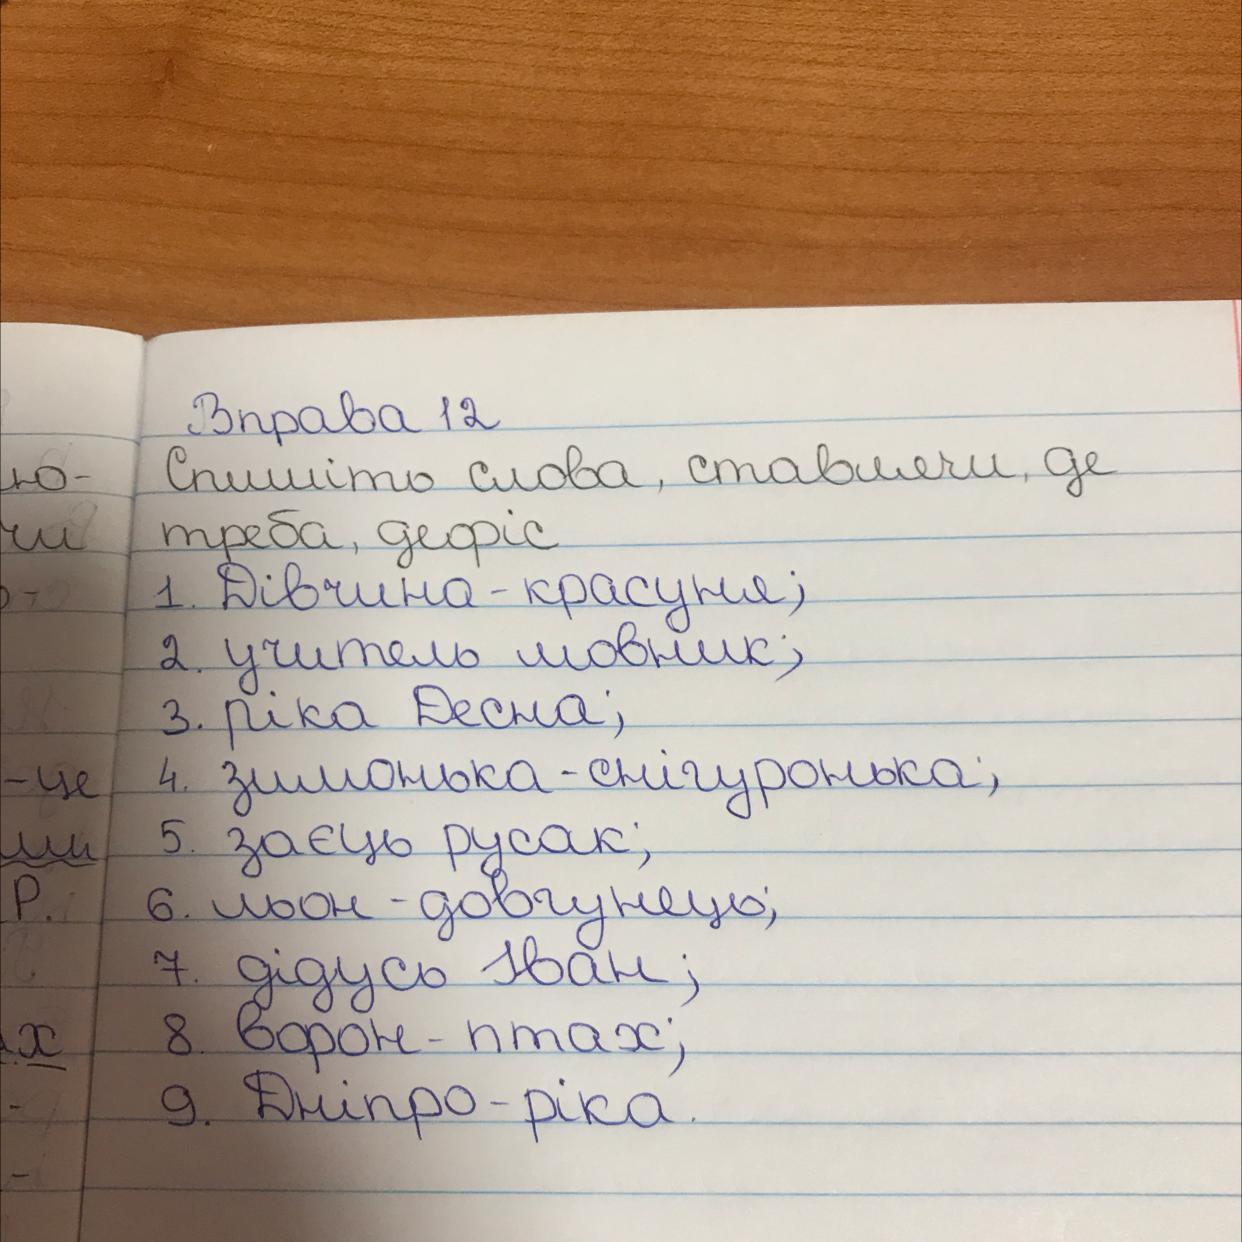 Вправа 12
ню- Спишіть слова, ставлячи, де
чи треба, дефіс
1. Дівчина-красуня;
2. учитель мовник;
3. ріка Десна;
-це 4. зимонька-снігуронька;
ми 5. заєць русак;
Р. 6. льон-довгунець;
7. дідусь Іван;
х 8. ворон-птах;
- 9. Дніпро-ріка.
-